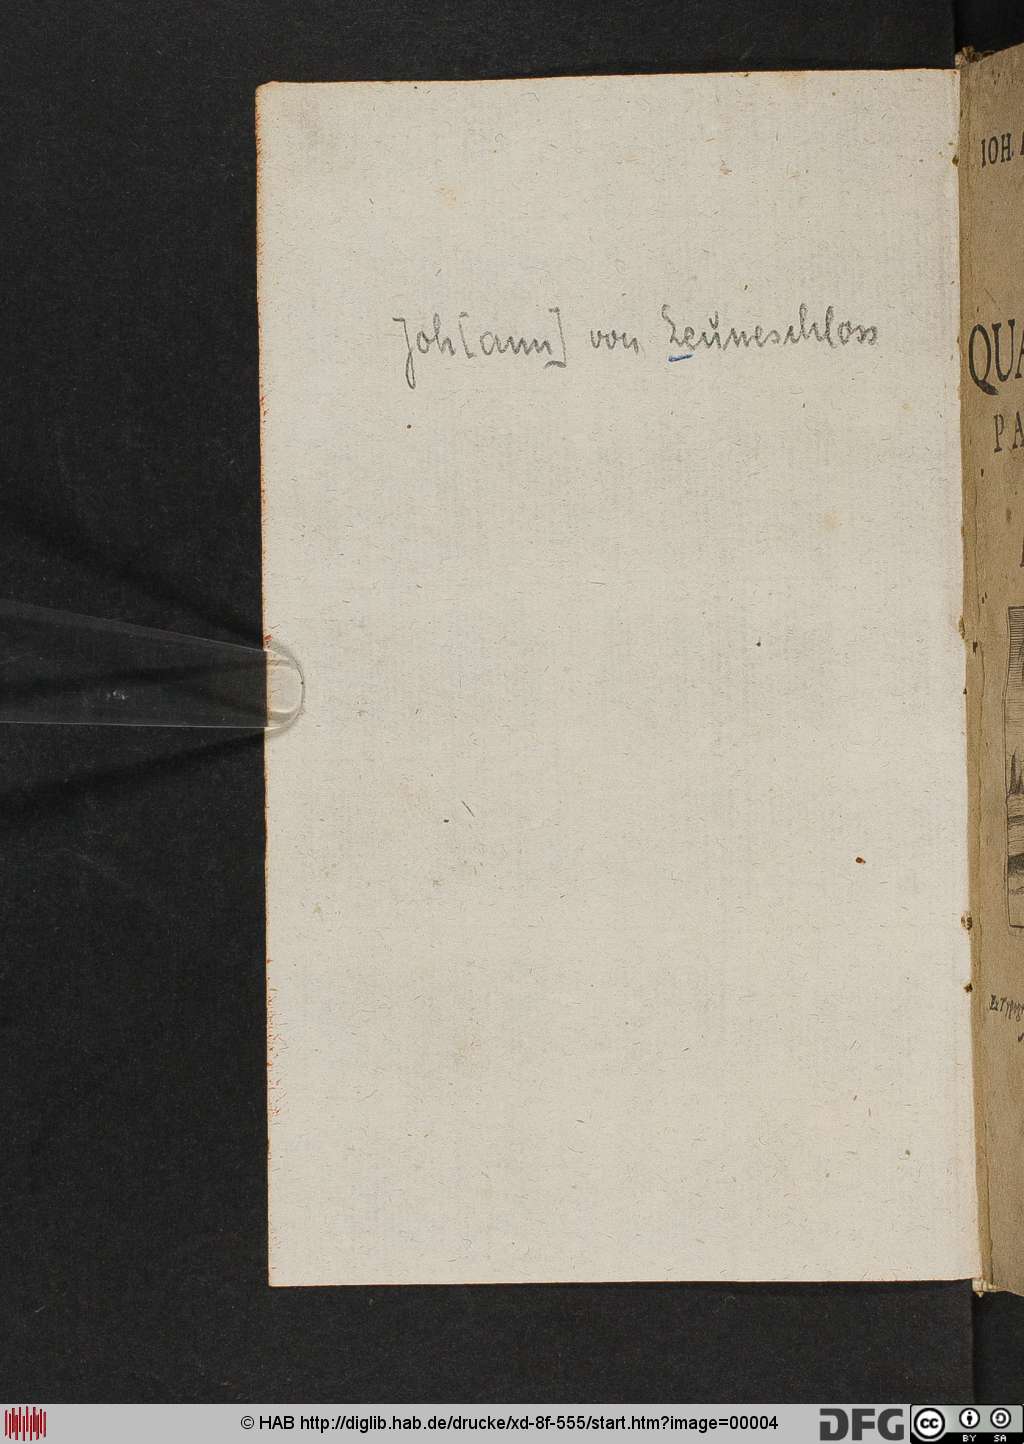 Joh[ann] von Leuneschloss
IOH.
QUA
PA
Ex Typogr
© HAB http://diglib.hab.de/drucke/xd-8f-555/start.htm?image=00004
DFG
cc
BY SA